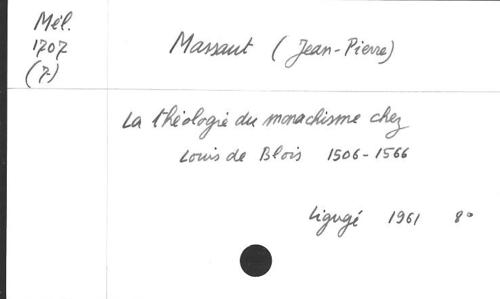 Mél.
1707
(7)
Massaut (Jean-Pierre)
La théologie du monachisme chez
Louis de Blois 1506-1566
Ligugé 1961 8°